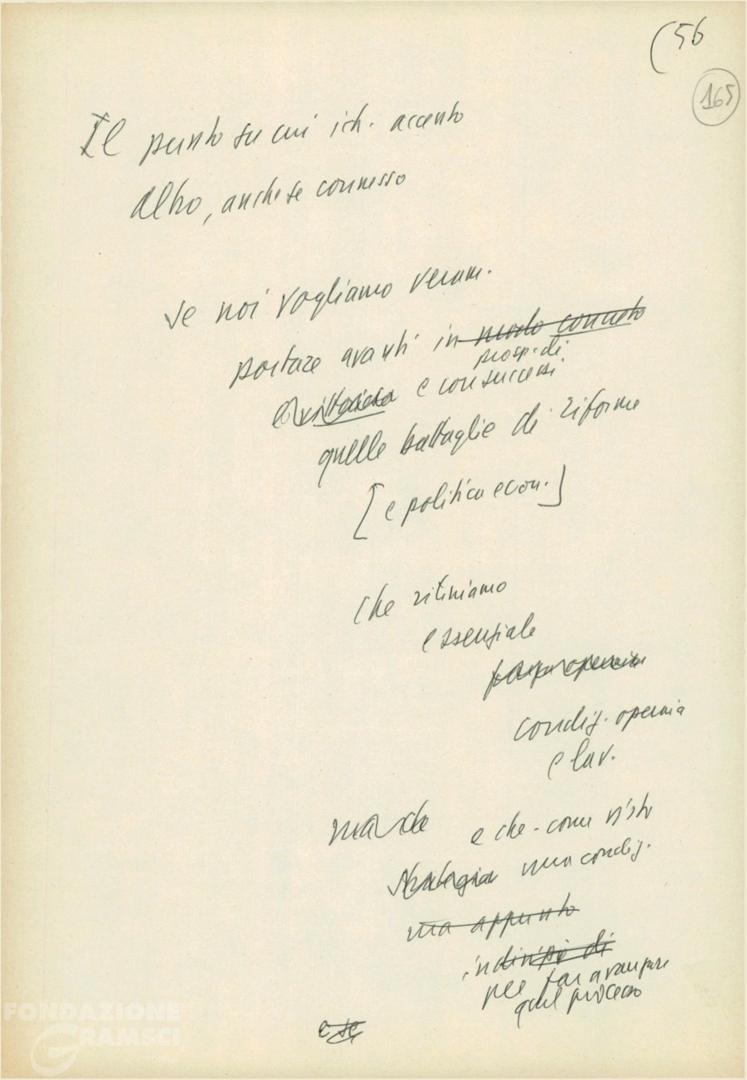 (56
165
Il punto su cui ich. accento
altro, anche se connesso
se noi vogliamo veram.
portare avanti in modo concreto
prosp. di
e con successi
quelle battaglie di riforme
[e politica econ.]
che riteniamo
essenziale
condiz. operaia
e lav.
ma che e che - come visto
una condiz.
ma appunto
per far avanzare
quel processo
e se
FONDAZIONE
GRAMSCI